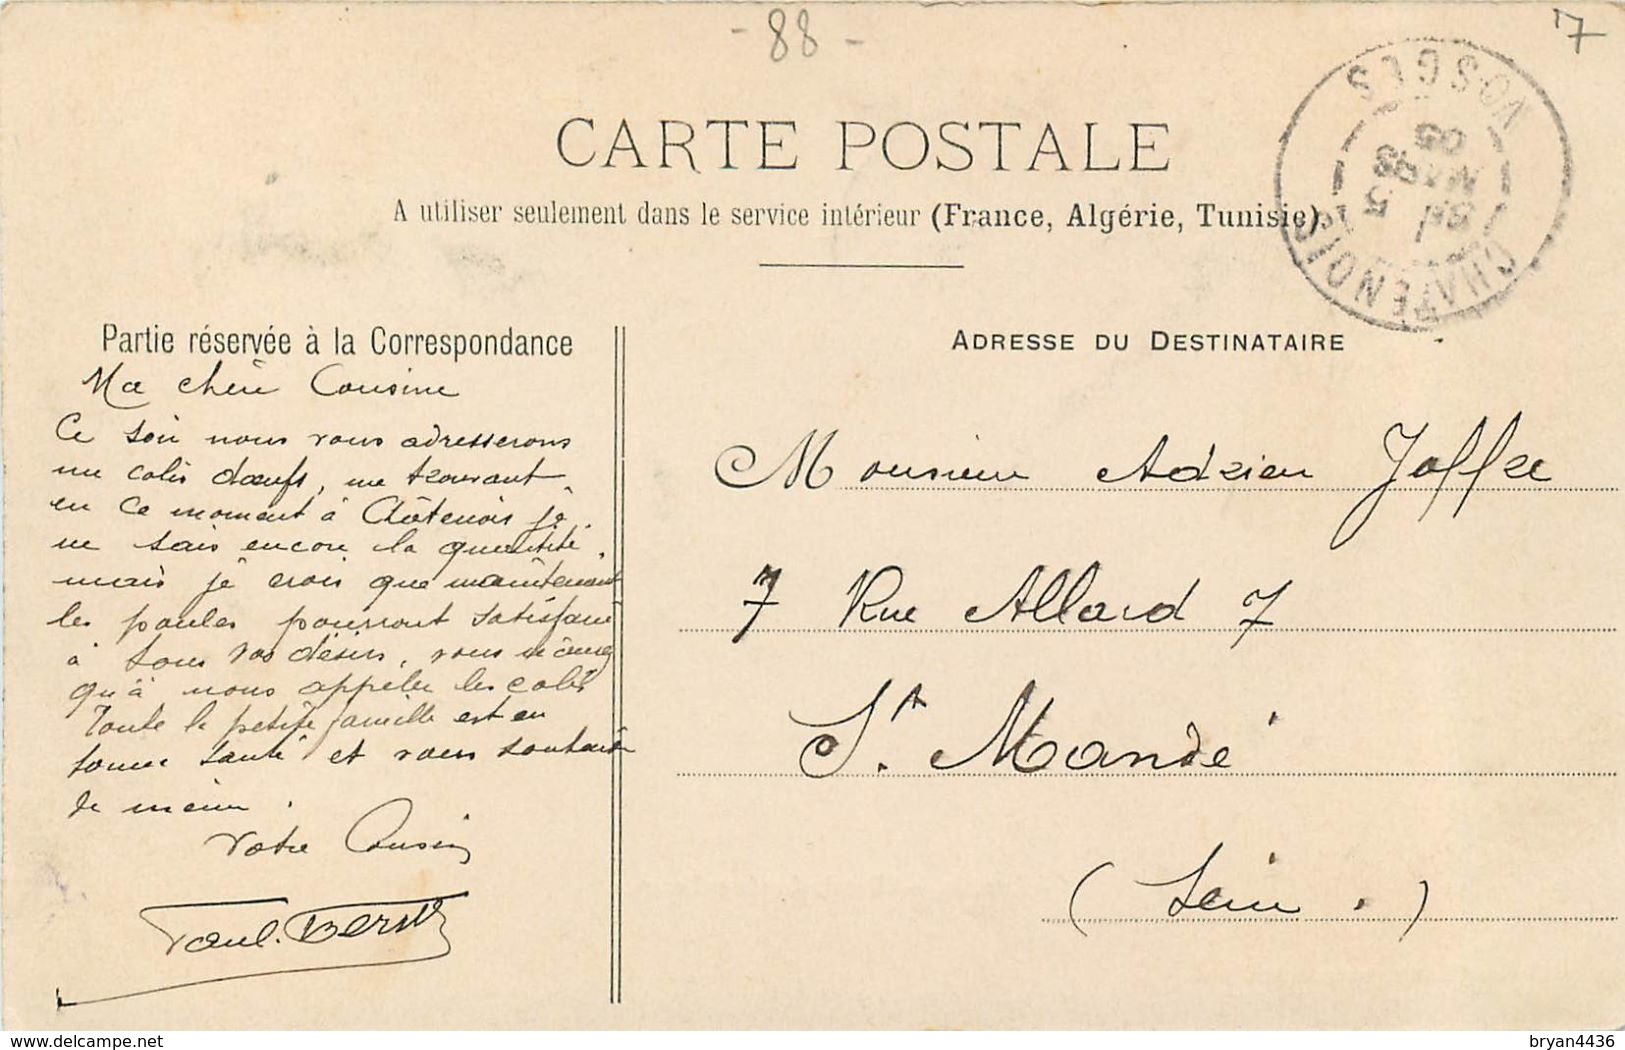 - 88 -
7
CARTE POSTALE
A utiliser seulement dans le service intérieur (France, Algérie, Tunisie)
VOSGES
CHATENOIS
5
MARS
05
Partie réservée à la Correspondance
Ma chère Cousine
Ce soir nous vous adresserons
un colis d'œufs, me trouvant
en ce moment à Châtenois je
ne sais encore la quantité,
mais je crois que maintenant
les poules pourront satisfaire
à tous vos désirs, vous
qu'à nous appeler les colis
Toute la petite famille est en
bonne santé et vous souhaite
de même.
Votre Cousin
Paul.
ADRESSE DU DESTINATAIRE
Monsieur Adrien Joffre
7 Rue Allard 7
St. Mandé
(Seine.)
delcampe.net
bryan4436